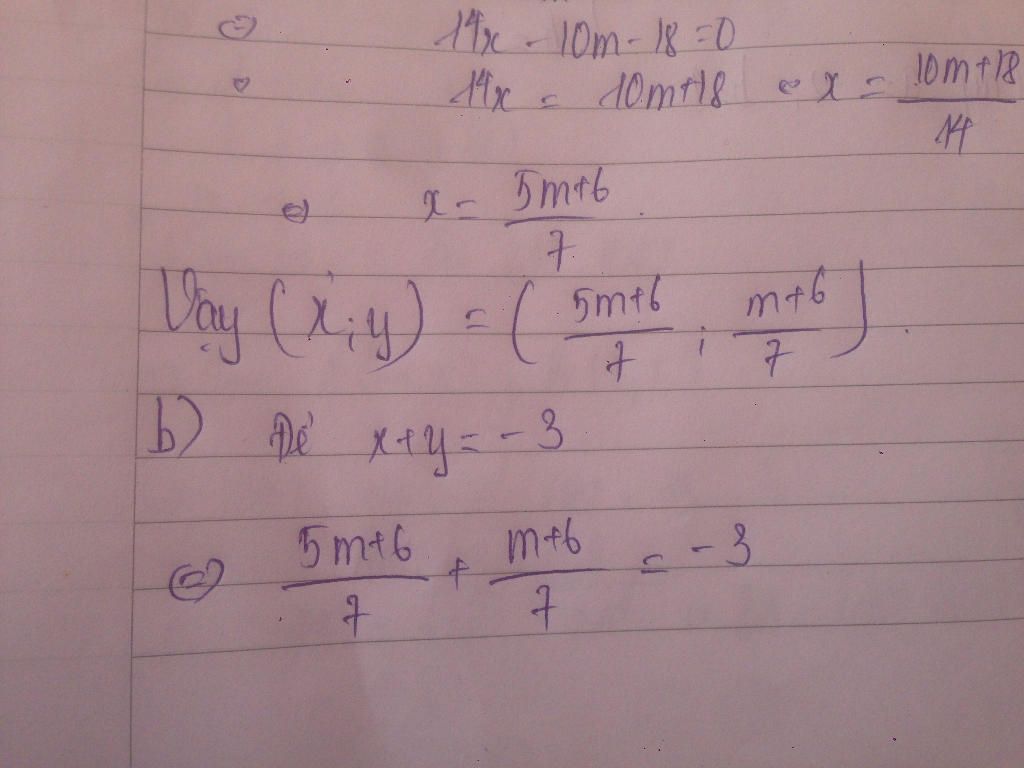 ⇔ 14x - 10m - 18 = 0
⇔ 14x = 10m+18 ⇔ x = 10m+18 / 14
⇔ x = 5m+6 / 7 .
Vậy (x;y) = ( 5m+6 / 7 ; m+6 / 7 ) .
b) Để x+y = -3
⇔ 5m+6 / 7 + m+6 / 7 = -3